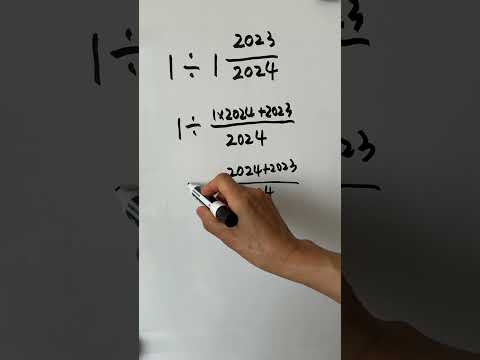 1 ÷ 1 2023/2024
1 ÷ (1×2024+2023)/2024
2024+2023